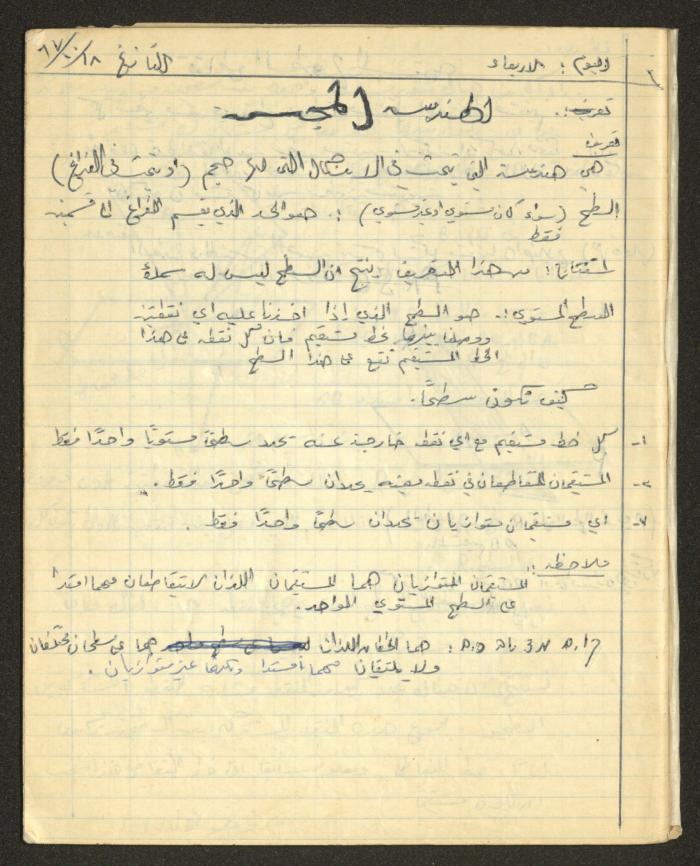 ١
اليوم : الاربعاء التاريخ ١٨/١٠/٦٧
تعريف :. الهندسه المجسمة
تعريف
هي هندسة التي تبحث في الاشكال التي لها حجم (او تبحث في الفراغ)
السطح (سواء كان مستوي او غير مستوي) :. هو الحد الذي يقسم الفراغ الى قسمين
فقط
استنتاج : من هذا التعريف ينتج ان السطح ليس له سمك
السطح المستوي :. هو السطح الذي إذا اخذنا عليه اي نقطتين
ووصلنا بينهما بخط مستقيم فإن كل نقطه على هذا
الخط المستقيم تقع على هذا السطح
كيف تكون سطحًا.
١- كل خط مستقيم مع اي نقطه خارجية عنه تحدد سطحًا مستويًا واحدًا فقط
٢- المستقيمان المتقاطعان في نقطه معينه يحددان سطحًا واحدًا فقط .
٣- اي مستقيمان متوازيان يحددان سطحًا واحدًا فقط .
ملاحظه :.
المستقيمان المتوازيان هما المستقيمان اللذان لا يتقاطعان مهما امتدا
على السطح المستوي الواحد.
: هما الخطان اللذان هما على سطحان مختلفان
ولا يلتقيان مهما امتدا ولكنهما غير متوازيان .